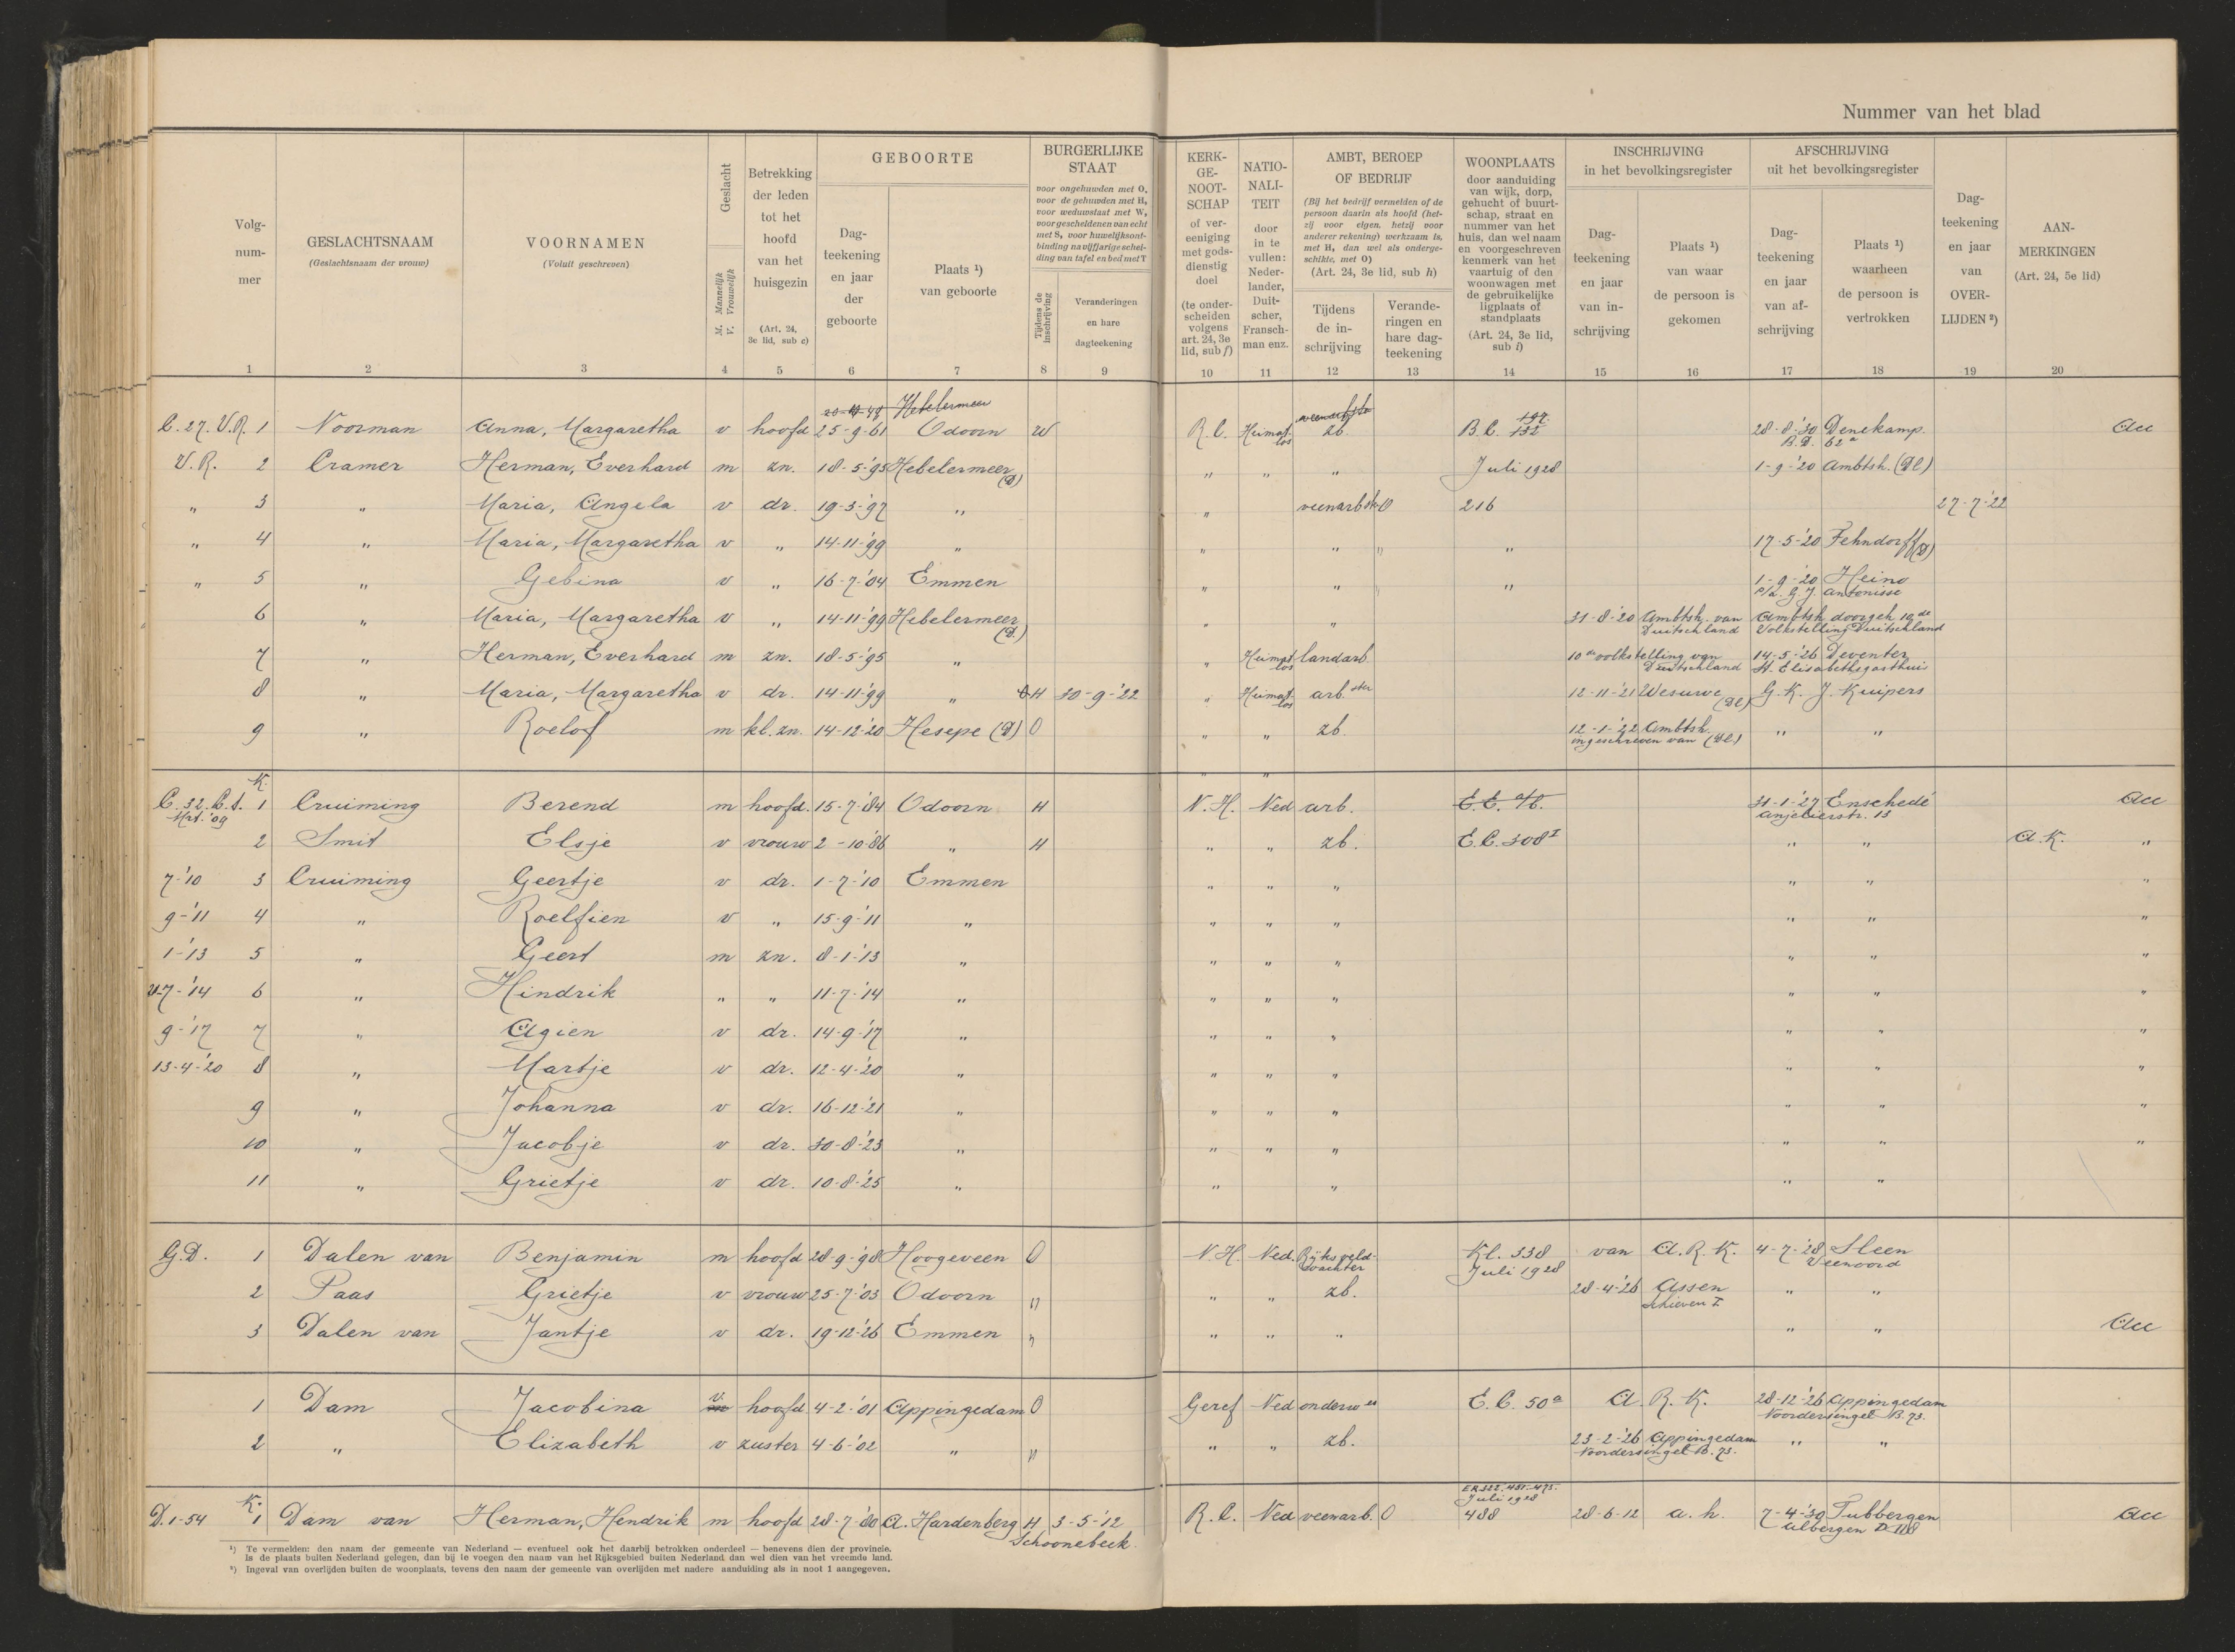 Nummer van het blad
Volg-
num-
mer
GESLACHTSNAAM
(Geslachtsnaam der vrouw)
VOORNAMEN
(Voluit geschreven)
Geslacht
M. Mannelijk
V. Vrouwelijk
Betrekking
der leden
tot het
hoofd
van het
huisgezin
(Art. 24,
3e lid, sub c)
GEBOORTE
Dag-
teekening
en jaar
der
geboorte
Plaats ¹)
van geboorte
BURGERLIJKE
STAAT
voor ongehuwden met O,
voor de gehuwden met H,
voor weduwstaat met W,
voor gescheidenen van echt
met S, voor huwelijksont-
binding na vijfjarige schei-
ding van tafel en bed met T
Tijdens de
inschrijving
Veranderingen
en hare
dagteekening
KERK-
GE-
NOOT-
SCHAP
of ver-
eeniging
met gods-
dienstig
doel
(te onder-
scheiden
volgens
art. 24, 3e
lid, sub f)
NATIO-
NALI-
TEIT
door
in te
vullen:
Neder-
lander,
Duit-
scher,
Fransch-
man enz.
AMBT, BEROEP
OF BEDRIJF
(Bij het bedrijf vermelden of de
persoon daarin als hoofd (het-
zij voor eigen, hetzij voor
anderer rekening) werkzaam is,
met H, dan wel als onderge-
schikte, met O)
(Art. 24, 3e lid, sub h)
Tijdens
de in-
schrijving
Verande-
ringen en
hare dag-
teekening
WOONPLAATS
door aanduiding
van wijk, dorp,
gehucht of buurt-
schap, straat en
nummer van het
huis, dan wel naam
en voorgeschreven
kenmerk van het
vaartuig of den
woonwagen met
de gebruikelijke
ligplaats of
standplaats
(Art. 24, 3e lid,
sub i)
INSCHRIJVING
in het bevolkingsregister
Dag-
teekening
en jaar
van in-
schrijving
Plaats ¹)
van waar
de persoon is
gekomen
AFSCHRIJVING
uit het bevolkingsregister
Dag-
teekening
en jaar
van af-
schrijving
Plaats ¹)
waarheen
de persoon is
vertrokken
Dag-
teekening
en jaar
van
OVER-
LIJDEN ²)
AAN-
MERKINGEN
(Art. 24, 5e lid)
1 2 3 4 5 6 7 8 9 10 11 12 13 14 15 16 17 18 19 20
Hebelermeer
197
C. 27. V.R. 1 Noorman Anna, Margaretha v hoofd 25-9-61 Odoorn W R.C. Heimatlos zb. B.C. 132 28-8-'30 Denekamp
B.D. 62a
V.R. 2 Cramer Herman, Everhard m zn. 18-5-'95 Hebelermeer (D) " " " Juli 1928 1-9-'20 Ambtsh. (Dl)
" 3 " Maria, Angela v dr. 19-3-'97 " " veenarbster O 216 27-7-'22
" 4 " Maria, Margaretha v " 14-11-'99 " " " " " 17-5-'20 Fehndorff (D)
" 5 " Gebina v " 16-7-'04 Emmen " " " 1-9-'20 Heino
p/a. G.J. Antonisse
6 " Maria, Margaretha v " 14-11-'99 Hebelermeer (D.) " " 31-8-'20 Ambtsh. van Duitschland Ambtsh doorgeh 10de
Volkstelling Duitschland
7 " Herman, Everhard m zn. 18-5-'95 " " Heimatlos landarb. 10de volkstelling van Duitschland 14-5-'26 Deventer
St. Elisabethsgasthuis
8 " Maria, Margaretha v dr. 14-11-'99 " O H 30-9-'22 " Heimatlos arb.ster 12-11-'21 Wesuwe (Dl) G.K. J. Kuipers
9 " Roelof m kl. zn. 14-12-'20 Hesepe (D) O " " zb. 12-1-'22 Ambtsh.
ingeschreven van (Dl.) " "
" "
K.
C. 32. C.A. 1 Cruiming Berend m hoofd. 15-7-'84 Odoorn H N.H. Ned arb. 31-1-'27 Enschedé
Mrt. '09 Anjelierstr. 13
2 Smit Elsje v vrouw 2-10-'86 " H " " zb. E.C. 308 I " " A.K. "
7-'10 3 Cruiming Geertje v dr. 1-7-'10 Emmen " " " " " "
9-'11 4 " Roelfien v " 15-9-'11 " " " " " " "
1-'13 5 " Geert m zn. 8-1-'13 " " " " " " "
7-'14 6 " Hindrik " " 11-7-'14 " " " " " " "
9-'17 7 " Agien v dr. 14-9-'17 " " " " " " "
13-4-'20 8 " Martje v dr. 12-4-'20 " " " " " " "
9 " Johanna v dr. 16-12-'21 " " " " " " "
10 " Jacobje v dr. 30-8-'23 " " " " " " "
11 " Grietje v dr. 10-8-'25 " " " " "
G.D. 1 Dalen van Benjamin m hoofd 28-9-'98 Hoogeveen O N.H. Ned. Rijksveldwachter Kl. 338 van A.R.K. 4-7-'28 Sleen
Juli 1928 Veenoord
2 Paas Grietje v vrouw 25-7-'03 Odoorn " " " zb. 28-4-'26 Assen " "
Schieven I
3 Dalen van Jantje v dr. 19-12-'26 Emmen " " " " " "
1 Dam Jacobina v. hoofd 4-2-'01 Appingedam O Geref Ned onderw es E.C. 50a A.R.K. 28-12-'26 Appingedam
Noordersingel B.73.
2 " Elizabeth v zuster 4-6-'02 " " " " zb. 23-2-'26 Appingedam " "
Noordersingel B.73.
K. Juli 1928
D.1-54 1 Dam van Herman, Hendrik m hoofd 28-7-'80 A. Hardenberg H 3-5-'12 R.C. Ned veenarb. O 488 28-6-12 a.h. 7-4-'30 Tubbergen
Schoonebeek. Albergen D 118
¹) Te vermelden: den naam der gemeente van Nederland — eventueel ook het daarbij betrokken onderdeel — benevens dien der provincie.
Is de plaats buiten Nederland gelegen, dan bij te voegen den naam van het Rijksgebied buiten Nederland dan wel dien van het vreemde land.
²) Ingeval van overlijden buiten de woonplaats, tevens den naam der gemeente van overlijden met nadere aanduiding als in noot 1 aangegeven.